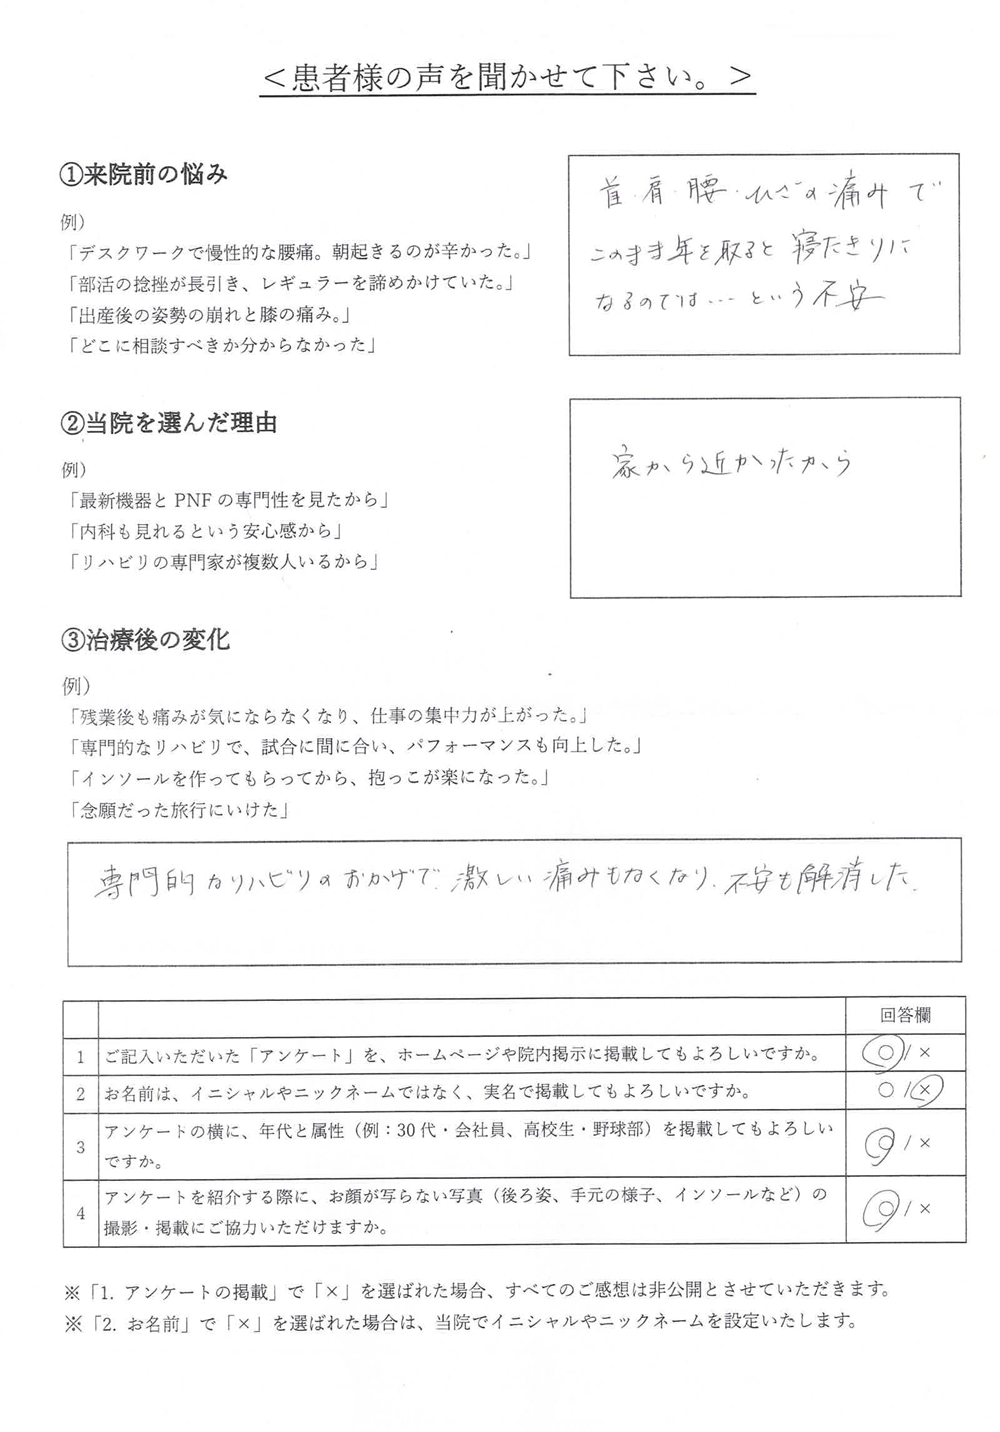 ＜患者様の声を聞かせて下さい。＞
①来院前の悩み
例）
「デスクワークで慢性的な腰痛。朝起きるのが辛かった。」
「部活の捻挫が長引き、レギュラーを諦めかけていた。」
「出産後の姿勢の崩れと膝の痛み。」
「どこに相談すべきか分からなかった」
首・肩・腰・ひざの痛みで
このまま年を取ると寝たきりに
なるのでは…という不安
②当院を選んだ理由
例）
「最新機器と PNF の専門性を見たから」
「内科も見れるという安心感から」
「リハビリの専門家が複数人いるから」
家から近かったから
③治療後の変化
例）
「残業後も痛みが気にならなくなり、仕事の集中力が上がった。」
「専門的なリハビリで、試合に間に合い、パフォーマンスも向上した。」
「インソールを作ってもらってから、抱っこが楽になった。」
「念願だった旅行にいけた」
専門的なリハビリのおかげで、激しい痛みもなくなり、不安も解消した。
回答欄
1 ご記入いただいた「アンケート」を、ホームページや院内掲示に掲載してもよろしいですか。 ○/×
2 お名前は、イニシャルやニックネームではなく、実名で掲載してもよろしいですか。 ○/×
3 アンケートの横に、年代と属性（例：30 代・会社員、高校生・野球部）を掲載してもよろしい ○/×
ですか。
4 アンケートを紹介する際に、お顔が写らない写真（後ろ姿、手元の様子、インソールなど）の ○/×
撮影・掲載にご協力いただけますか。
※「1. アンケートの掲載」で「×」を選ばれた場合、すべてのご感想は非公開とさせていただきます。
※「2. お名前」で「×」を選ばれた場合は、当院でイニシャルやニックネームを設定いたします。